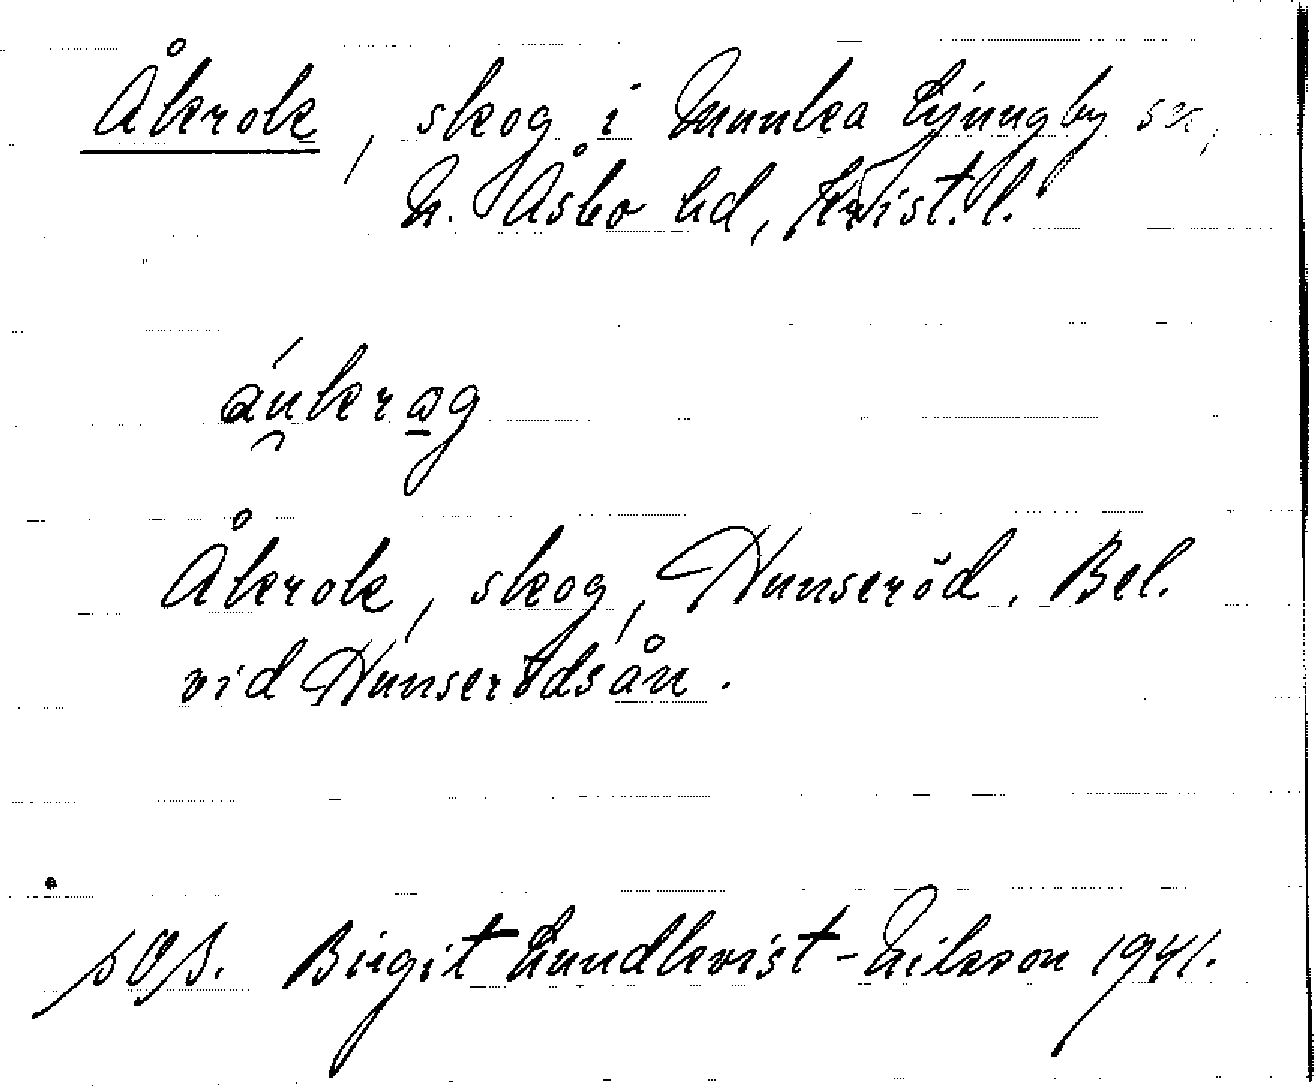 Åkrok, skog i Munka Ljungby sn,
N. Åsbo hd, Krist. l.
áu̯krɷ̱g
Åkrok, skog, Hunseröd. Bel.
vid Hunserödsån.
Birgit Lundkvist-Nilsson 1941.